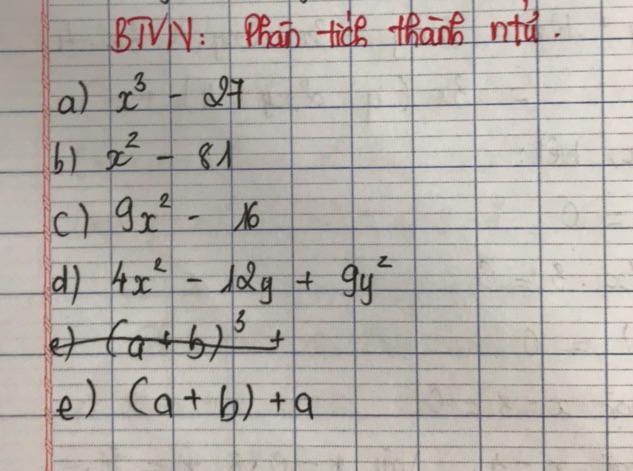 BTVN: Phân tích thành ntử.
a) x³ - 27
b) x² - 81
c) 9x² - 16
d) 4x² - 12y + 9y²
e) (a + b)³ +
e) (a + b) + a